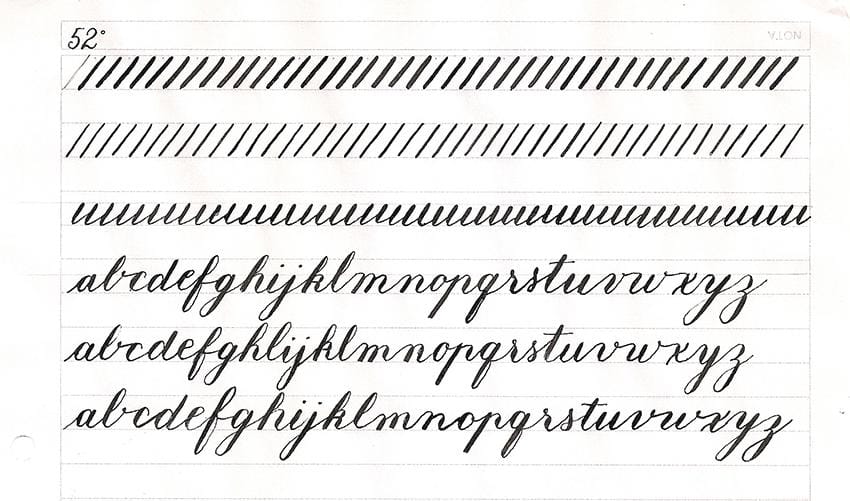 52°
NOTA
abcdefghijklmnopqrstuvwxyz
abcdefghlijklmnopqrstuvwxyz
abcdefghijklmnopqrstuvwxyz